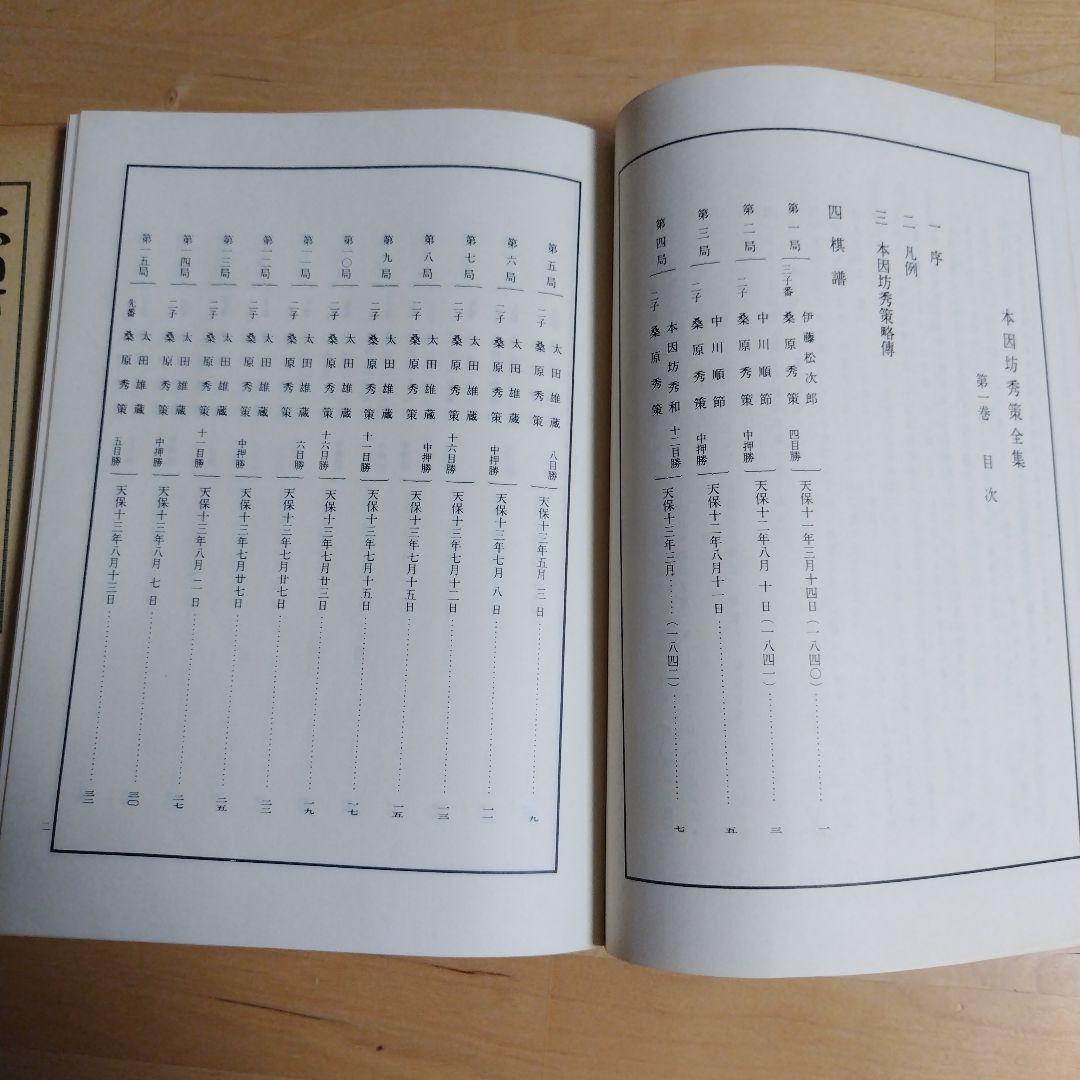 本因坊秀策全集
第一巻 目次
一 序
二 凡例
三 本因坊秀策略傳
四 棋譜
第一局 三子番 伊藤松次郎 桑原秀策 四目勝 天保十一年三月十四日(一八四〇)…… 一
第二局 二子 中川順節 桑原秀策 中押勝 天保十二年八月十日(一八四一)…… 三
第三局 二子 中川順節 桑原秀策 中押勝 天保十二年八月十一日…… 五
第四局 二子 本因坊秀和 桑原秀策 十二目勝 天保十三年二月……(一八四二)…… 七
第五局 二子 太田雄蔵 桑原秀策 八目勝 天保十三年五月三日…… 九
第六局 二子 太田雄蔵 桑原秀策 中押勝 天保十三年七月八日…… 一一
第七局 二子 太田雄蔵 桑原秀策 十六目勝 天保十三年七月十二日…… 一三
第八局 二子 太田雄蔵 桑原秀策 中押勝 天保十三年七月十五日…… 一五
第九局 二子 太田雄蔵 桑原秀策 十一目勝 天保十三年七月十五日…… 一七
第一〇局 二子 太田雄蔵 桑原秀策 十六目勝 天保十三年七月廿三日…… 一九
第一一局 二子 太田雄蔵 桑原秀策 六目勝 天保十三年七月廿七日…… 二二
第一二局 二子 太田雄蔵 桑原秀策 中押勝 天保十三年七月廿七日…… 二五
第一三局 二子 太田雄蔵 桑原秀策 十一目勝 天保十三年八月二日…… 二七
第一四局 二子 太田雄蔵 桑原秀策 中押勝 天保十三年八月七日…… 三〇
第一五局 先番 太田雄蔵 桑原秀策 五目勝 天保十三年八月十三日…… 三二
二